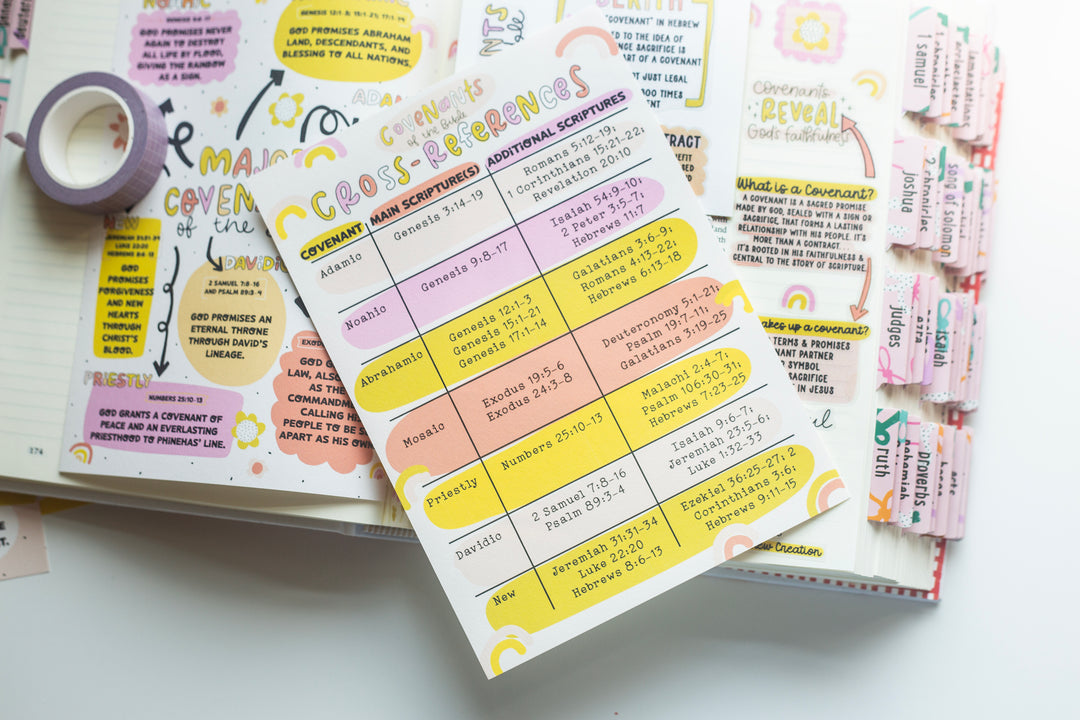 Covenants
of the Bible
CROSS-REFERENCES
COVENANT MAIN SCRIPTURE(S) ADDITIONAL SCRIPTURES
Adamic
Genesis 3:14-19
Romans 5:12-19;
1 Corinthians 15:21-22;
Revelation 20:10
Noahic
Genesis 9:8-17
Isaiah 54:9-10;
2 Peter 3:5-7;
Hebrews 11:7
Abrahamic
Genesis 12:1-3
Genesis 15:1-21
Genesis 17:1-14
Galatians 3:6-9;
Romans 4:13-22;
Hebrews 6:13-18
Mosaic
Exodus 19:5-6
Exodus 24:3-8
Deuteronomy 5:1-21;
Psalm 19:7-11;
Galatians 3:19-25
Priestly
Numbers 25:10-13
Malachi 2:4-7;
Psalm 106:30-31;
Hebrews 7:23-25
Davidic
2 Samuel 7:8-16
Psalm 89:3-4
Isaiah 9:6-7;
Jeremiah 23:5-6;
Luke 1:32-33
New
Jeremiah 31:31-34
Luke 22:20
Hebrews 8:6-13
Ezekiel 36:25-27; 2
Corinthians 3:6;
Hebrews 9:11-15
GOD PROMISES NEVER
AGAIN TO DESTROY
ALL LIFE BY FLOOD,
GIVING THE RAINBOW
AS A SIGN.
GENESIS 12:1-3; 15:1-21; 17:1-14
GOD PROMISES ABRAHAM
LAND, DESCENDANTS, AND
BLESSING TO ALL NATIONS.
ADA
MAJO
COVEN
of the
NEW
JEREMIAH 31:31-34
LUKE 22:20
HEBREWS 8:6-13
GOD
PROMISES
FORGIVENESS
AND NEW
HEARTS
THROUGH
CHRIST'S
BLOOD.
DAVIDIC
2 SAMUEL 7:8-16
AND PSALM 89:3-4
GOD PROMISES AN
ETERNAL THRONE
THROUGH DAVID'S
LINEAGE.
PRIESTLY
NUMBERS 25:10-13
GOD GRANTS A COVENANT OF
PEACE AND AN EVERLASTING
PRIESTHOOD TO PHINEHAS' LINE.
EXOD
GOD G
LAW, ALSO
AS THE
COMMANDM
CALLING HI
PEOPLE TO BE S
APART AS HIS OWN
274
"COVENANT" IN HEBREW
ED TO THE IDEA OF
NCE SACRIFICE IS
OT JUST LEGAL
00 TIMES
MENT
TRACT
EFIT
RED
and
Covenants
REVEAL
God's faithfulness
What is a Covenant?
A COVENANT IS A SACRED PROMISE
MADE BY GOD, SEALED WITH A SIGN OR
SACRIFICE, THAT FORMS A LASTING
RELATIONSHIP WITH HIS PEOPLE. IT'S
MORE THAN A CONTRACT.
IT'S ROOTED IN HIS FAITHFULNESS &
CENTRAL TO THE STORY OF SCRIPTURE.
akes up a covenant?
TERMS & PROMISES
NANT PARTNER
SYMBOL
SACRIFICE
IN JESUS
ew Creation
1 samuel
1 chronicles
lamentations
joshua
2 chronicles
song of solomon
judges
ezra
isaiah
ruth
nehemiah
proverbs
hosea
acts